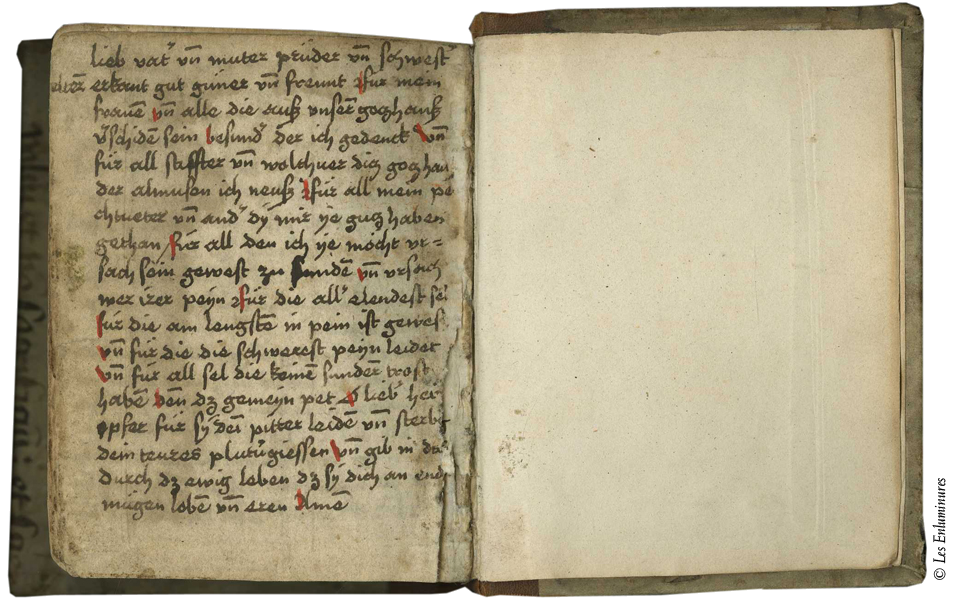 lieb vat' vn̄ muter prüder vn̄ schwest'
erkant gut güner vn̄ freunt für mein
frauē vn̄ alle die auß vnser gotzhauß
v'schidē sein besund' der ich gedenck vn̄
für all stiffter vn̄ wolthuer diz gotzhau
der almusen ich neuß für all mein pe
chtueter vn̄ and' dÿ mir ÿe gutz haben
gethan für all den ich ÿe möcht vr=
sach sein gewest zu sundē vn̄ vrsach
wer irer peÿn für die all' elendest sel
für die am lengstē in pein ist gewes
vn̄ für die die schwerest peÿn leidet
vn̄ für all sel die keinē sunder trost
habē den dz gemeÿn pet O lieb' her
opfer für sÿ dei pitter leidē vn̄ sterbē
dein teures plutugiessen vn̄ gib in
durch dz ewig leben dz sÿ dich an end
mügen lobē vn̄ eren Amē
© Les Enluminures